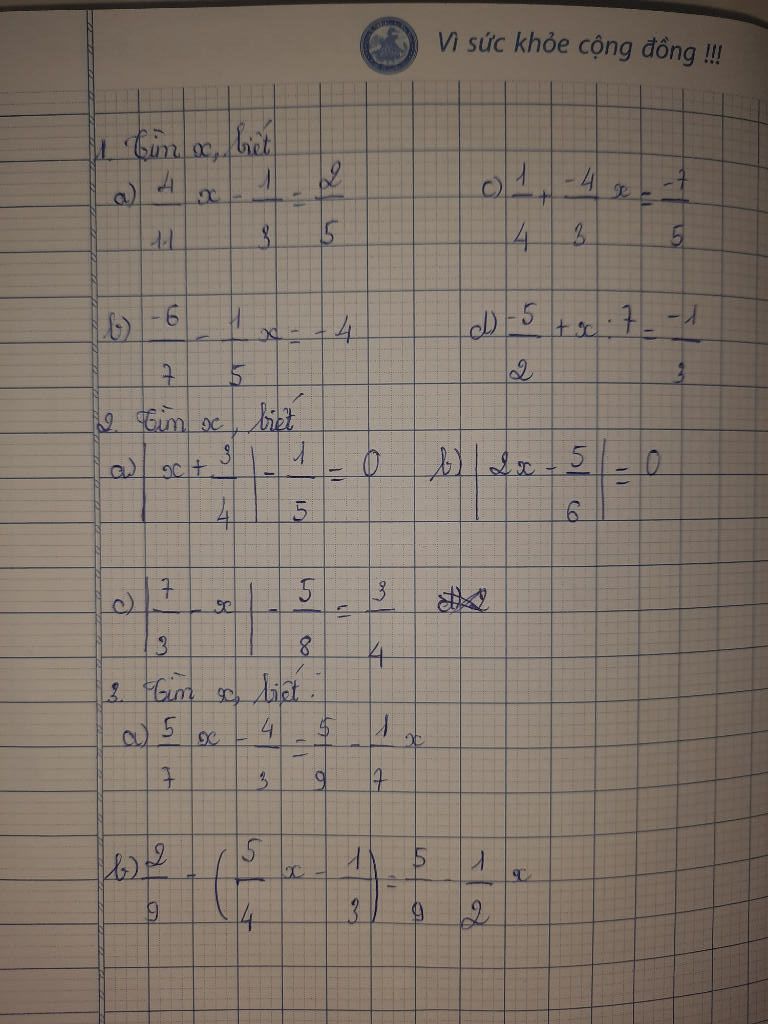 Vì sức khỏe cộng đồng !!!
1. Tìm x, biết
a) 4/11 x - 1/3 = 2/5 c) 1/4 + -4/3 x = -7/5
b) -6/7 - 1/5 x = -4 d) -5/2 + x : 7 = -1/3
2. Tìm x, biết
a) |x + 3/4| - 1/5 = 0 b) |2x - 5/6| = 0
c) |7/3 - x| - 5/8 = 3/4
3. Tìm x, biết:
a) 5/7 x - 4/3 = 5/9 - 1/7 x
b) 2/9 - (5/4 x - 1/3) = 5/9 - 1/2 x